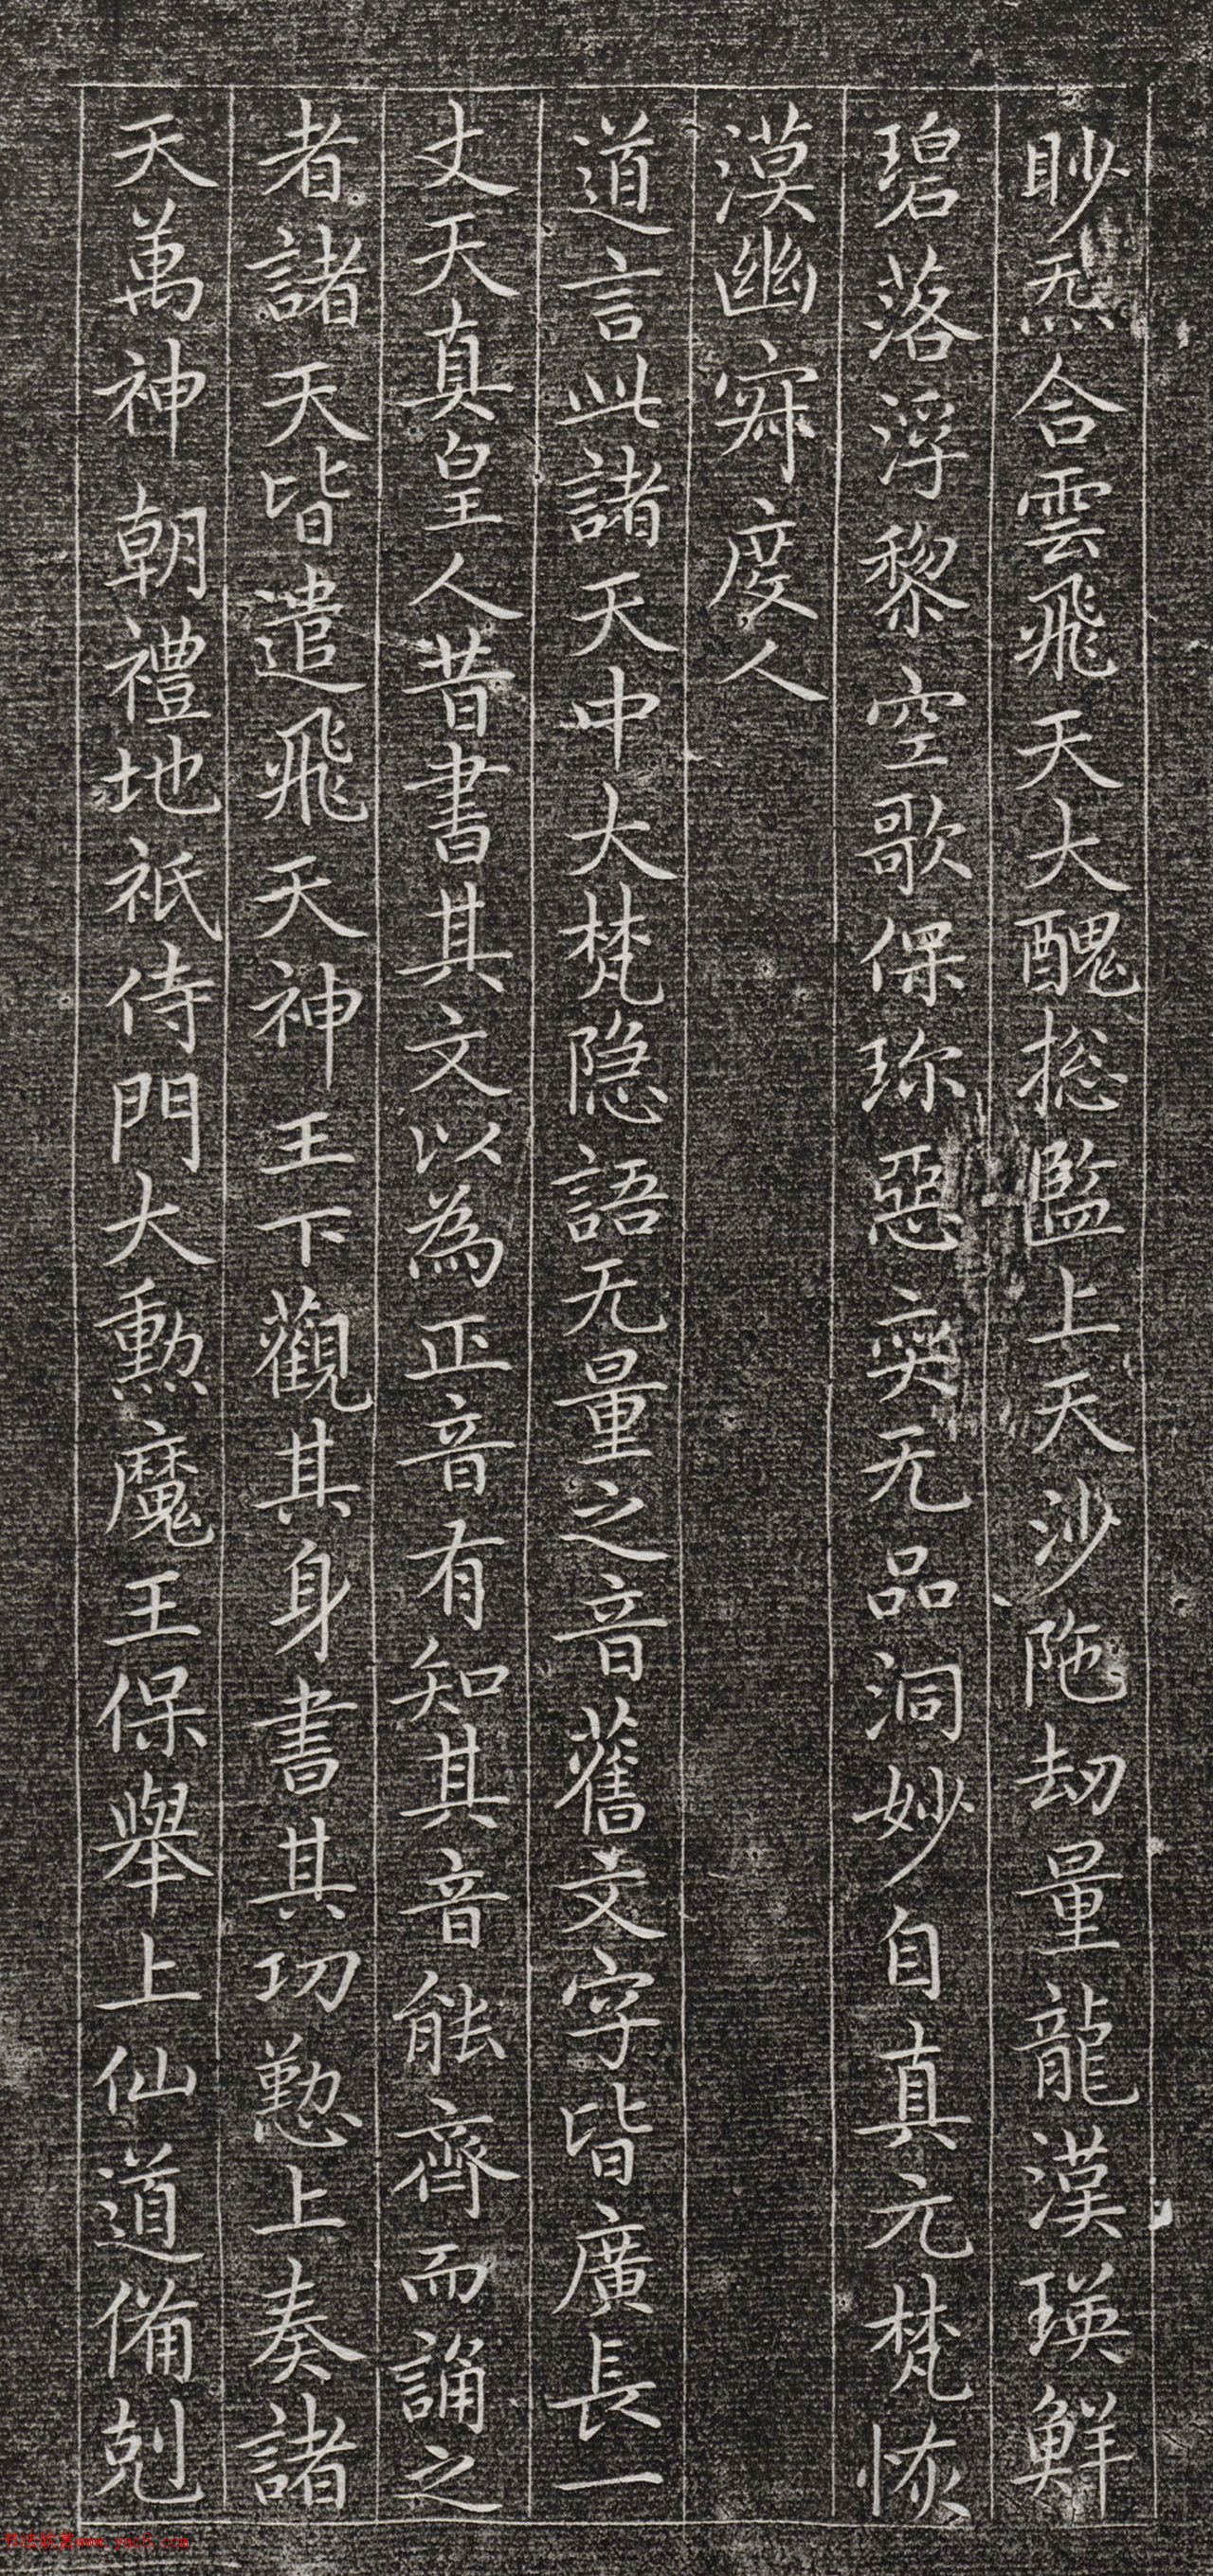 眇炁合雲飛天大醜揔監上天沙陁劫量龍漢瑛鮮
碧落浮黎空歌保珎惡奕无品洞妙自真元梵恢
漠幽寂度人
道言此諸天中大梵隐語无量之音舊文字皆廣長一
丈天真皇人昔書其文以為正音有知其音能齊而誦之
者諸天皆遣飛天神王下觀其身書其功懃上奏諸
天萬神朝禮地祇侍門大勲魔王保舉上仙道備剋